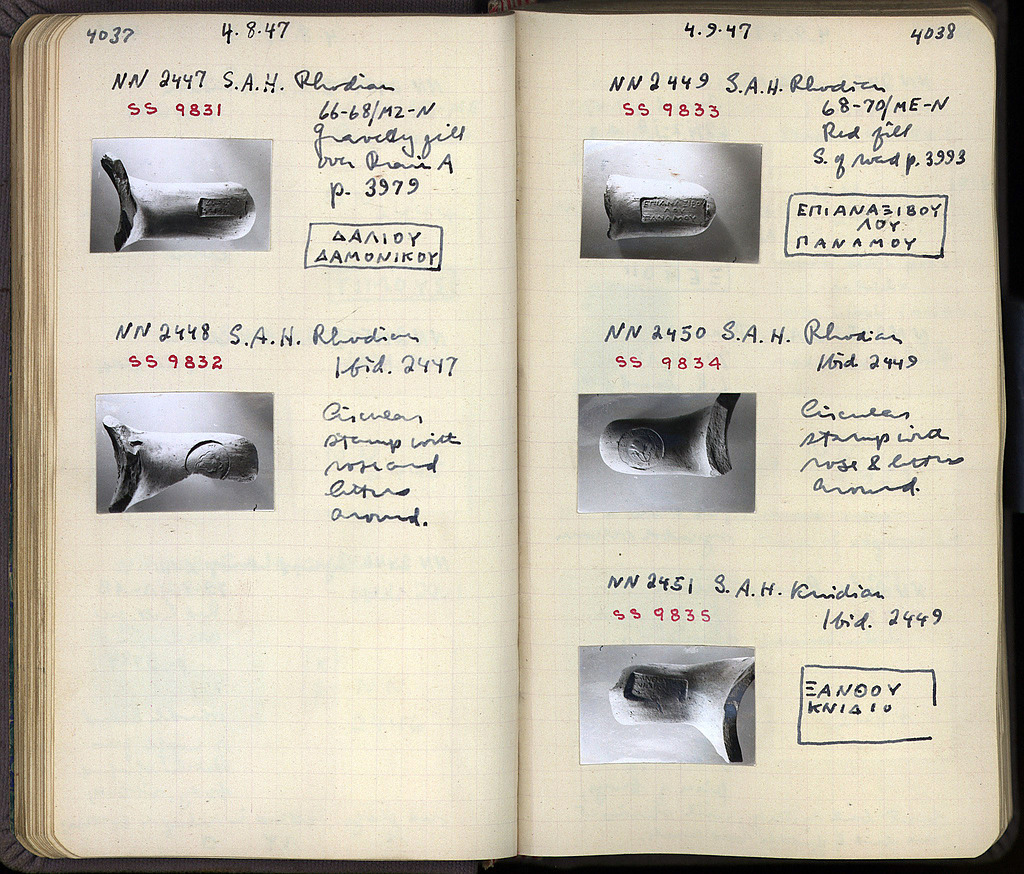 4037
4.8.47
NN 2447 S.A.H. Rhodian
SS 9831
66-68/MZ-N
Gravelly fill
over Drain A
p. 3979
ΔΑΛΙΟΥ
ΔΑΜΟΝΙΚΟΥ
NN 2448 S.A.H. Rhodian
SS 9832
Ibid. 2447
Circular
stamp with
rose and
letters
around.
4.9.47
4038
NN 2449 S.A.H. Rhodian
SS 9833
68-70/ME-N
Red fill
S. of road p. 3993
ΕΠΙΑΝΑΞΙΒΟΥ
ΛΟΥ
ΠΑΝΑΜΟΥ
NN 2450 S.A.H. Rhodian
SS 9834
Ibid 2449
Circular
stamp with
rose & letters
around.
NN 2451 S.A.H. Knidian
SS 9835
Ibid. 2449
ΞΑΝΘΟΥ
ΚΝΙΔΙΟ